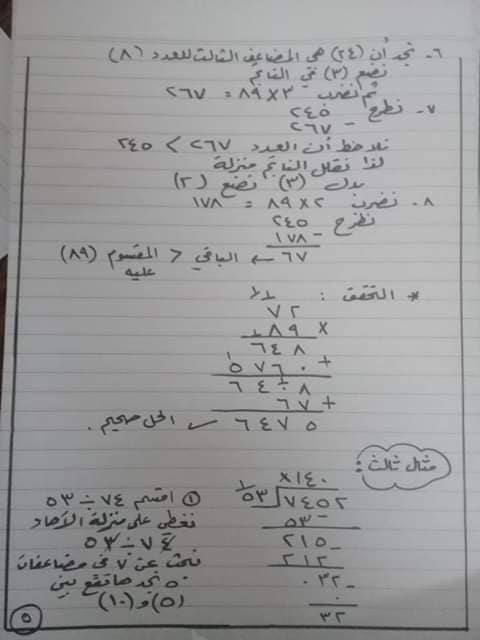 ٦- نجد أن (٢٤) هي المضاعف الثالث للعدد (٨)
نضع (٣) في الناتج
ثم نضرب ٣ × ٨٩ = ٢٦٧
٧- نطرح ٢٤٥
- ٢٦٧
نلاحظ أن العدد ٢٦٧ > ٢٤٥
لذا نقلل الناتج منزلة
بدل (٣) نضع (٢)
٨- نضرب ٢ × ٨٩ = ١٧٨
نطرح ٢٤٥
١٧٨ -
٦٧ ← الباقي < المقسوم (٨٩)
عليه
* التحقق :
٧٢
٨٩ ×
٦٤٨
٥٧٦٠ +
٦٤٠٨
٦٧ +
٦٤٧٥ الحل صحيح .
مثال ثالث :
×١٤٠
٥٣ ٧٤٥٢
① اقسم ٧٤ ÷ ٥٣
٥٣ -
نغطي على منزلة الآحاد
٢١٥
٧٤ ÷ ٥٣
٢١٢ -
نبحث عن ٧ في مضاعفات
٠٣٢
٥ نجدها تقع بين
٠ -
(٥) و (١٠)
٣٢
٥